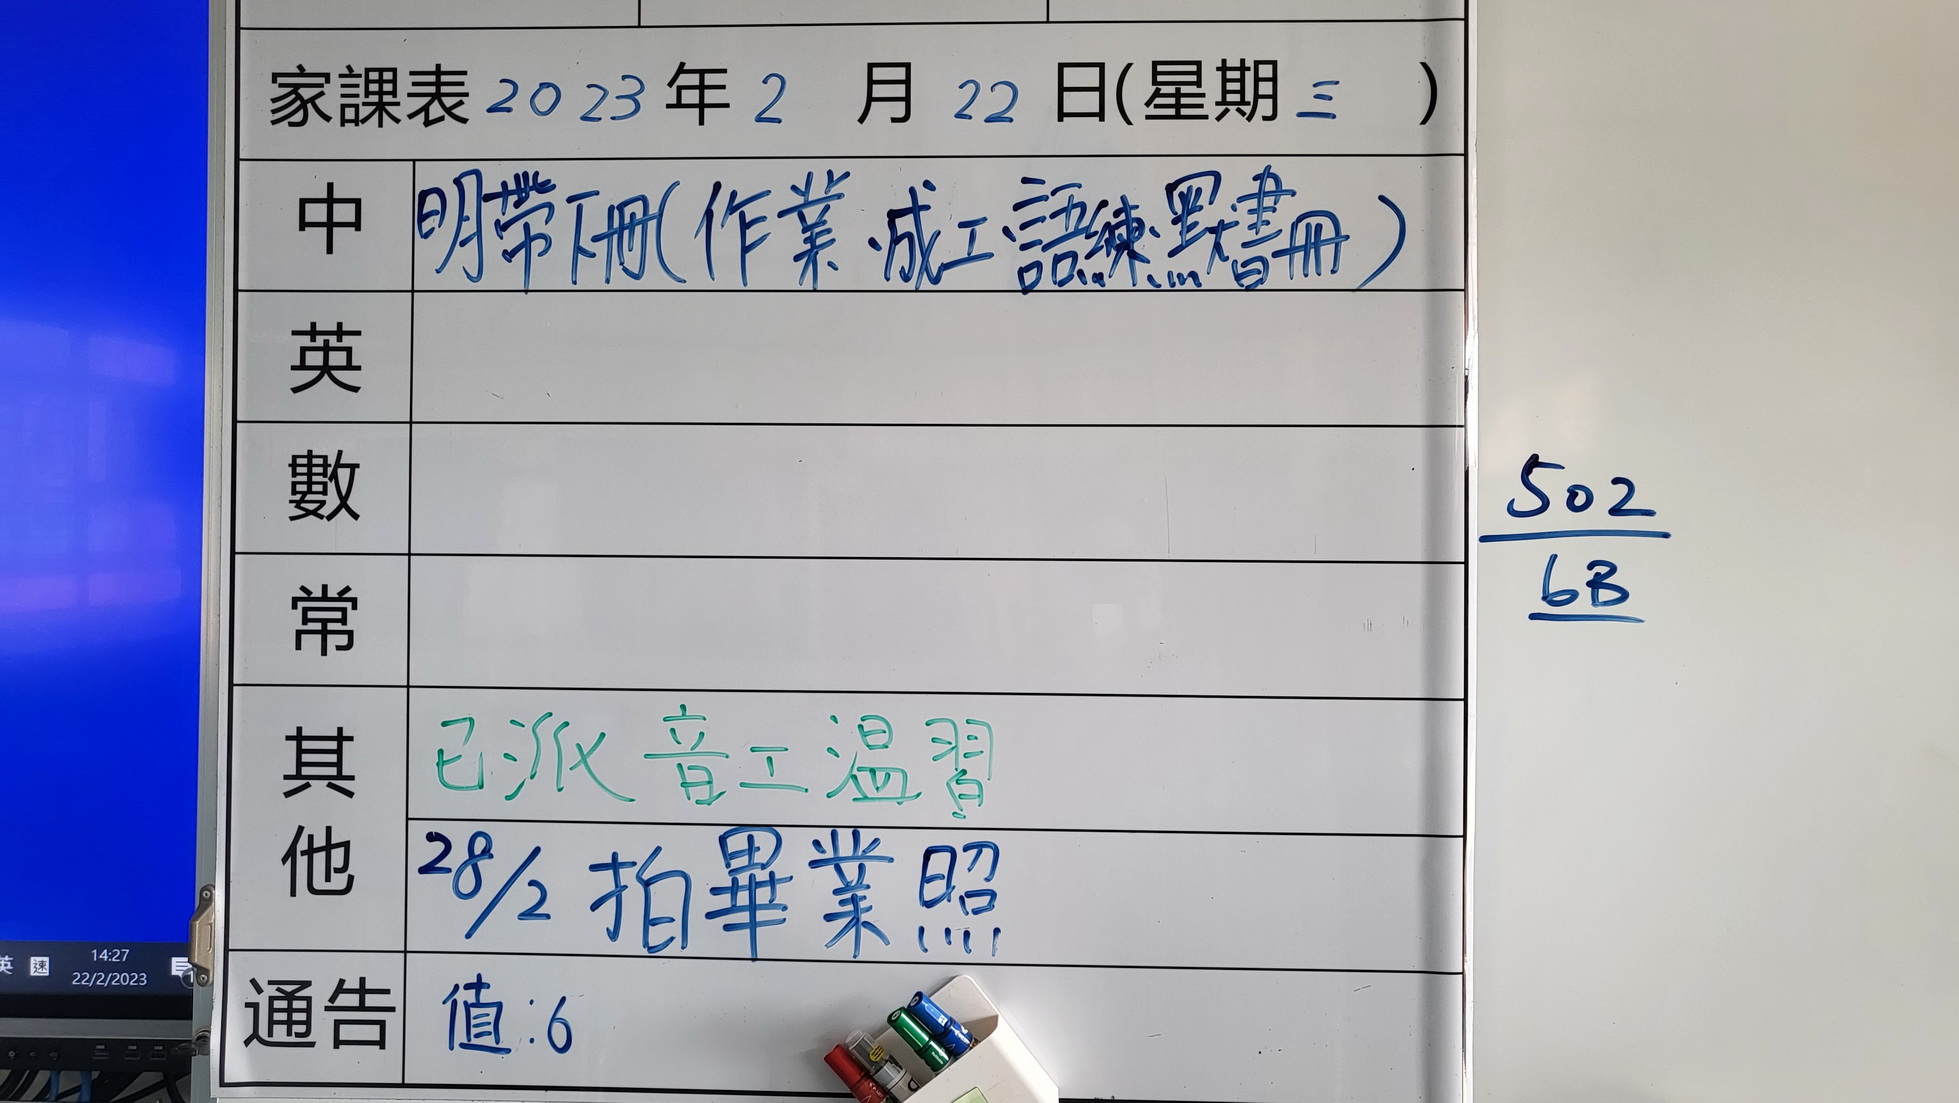 家課表 2023 年 2 月 22 日(星期 三 )
中 明帶下冊(作業、成工、語練、默書冊)
英
數
常
其他
已派音工溫習
28/2 拍畢業照
通告 值:6
502
6B
英 速 14:27
22/2/2023